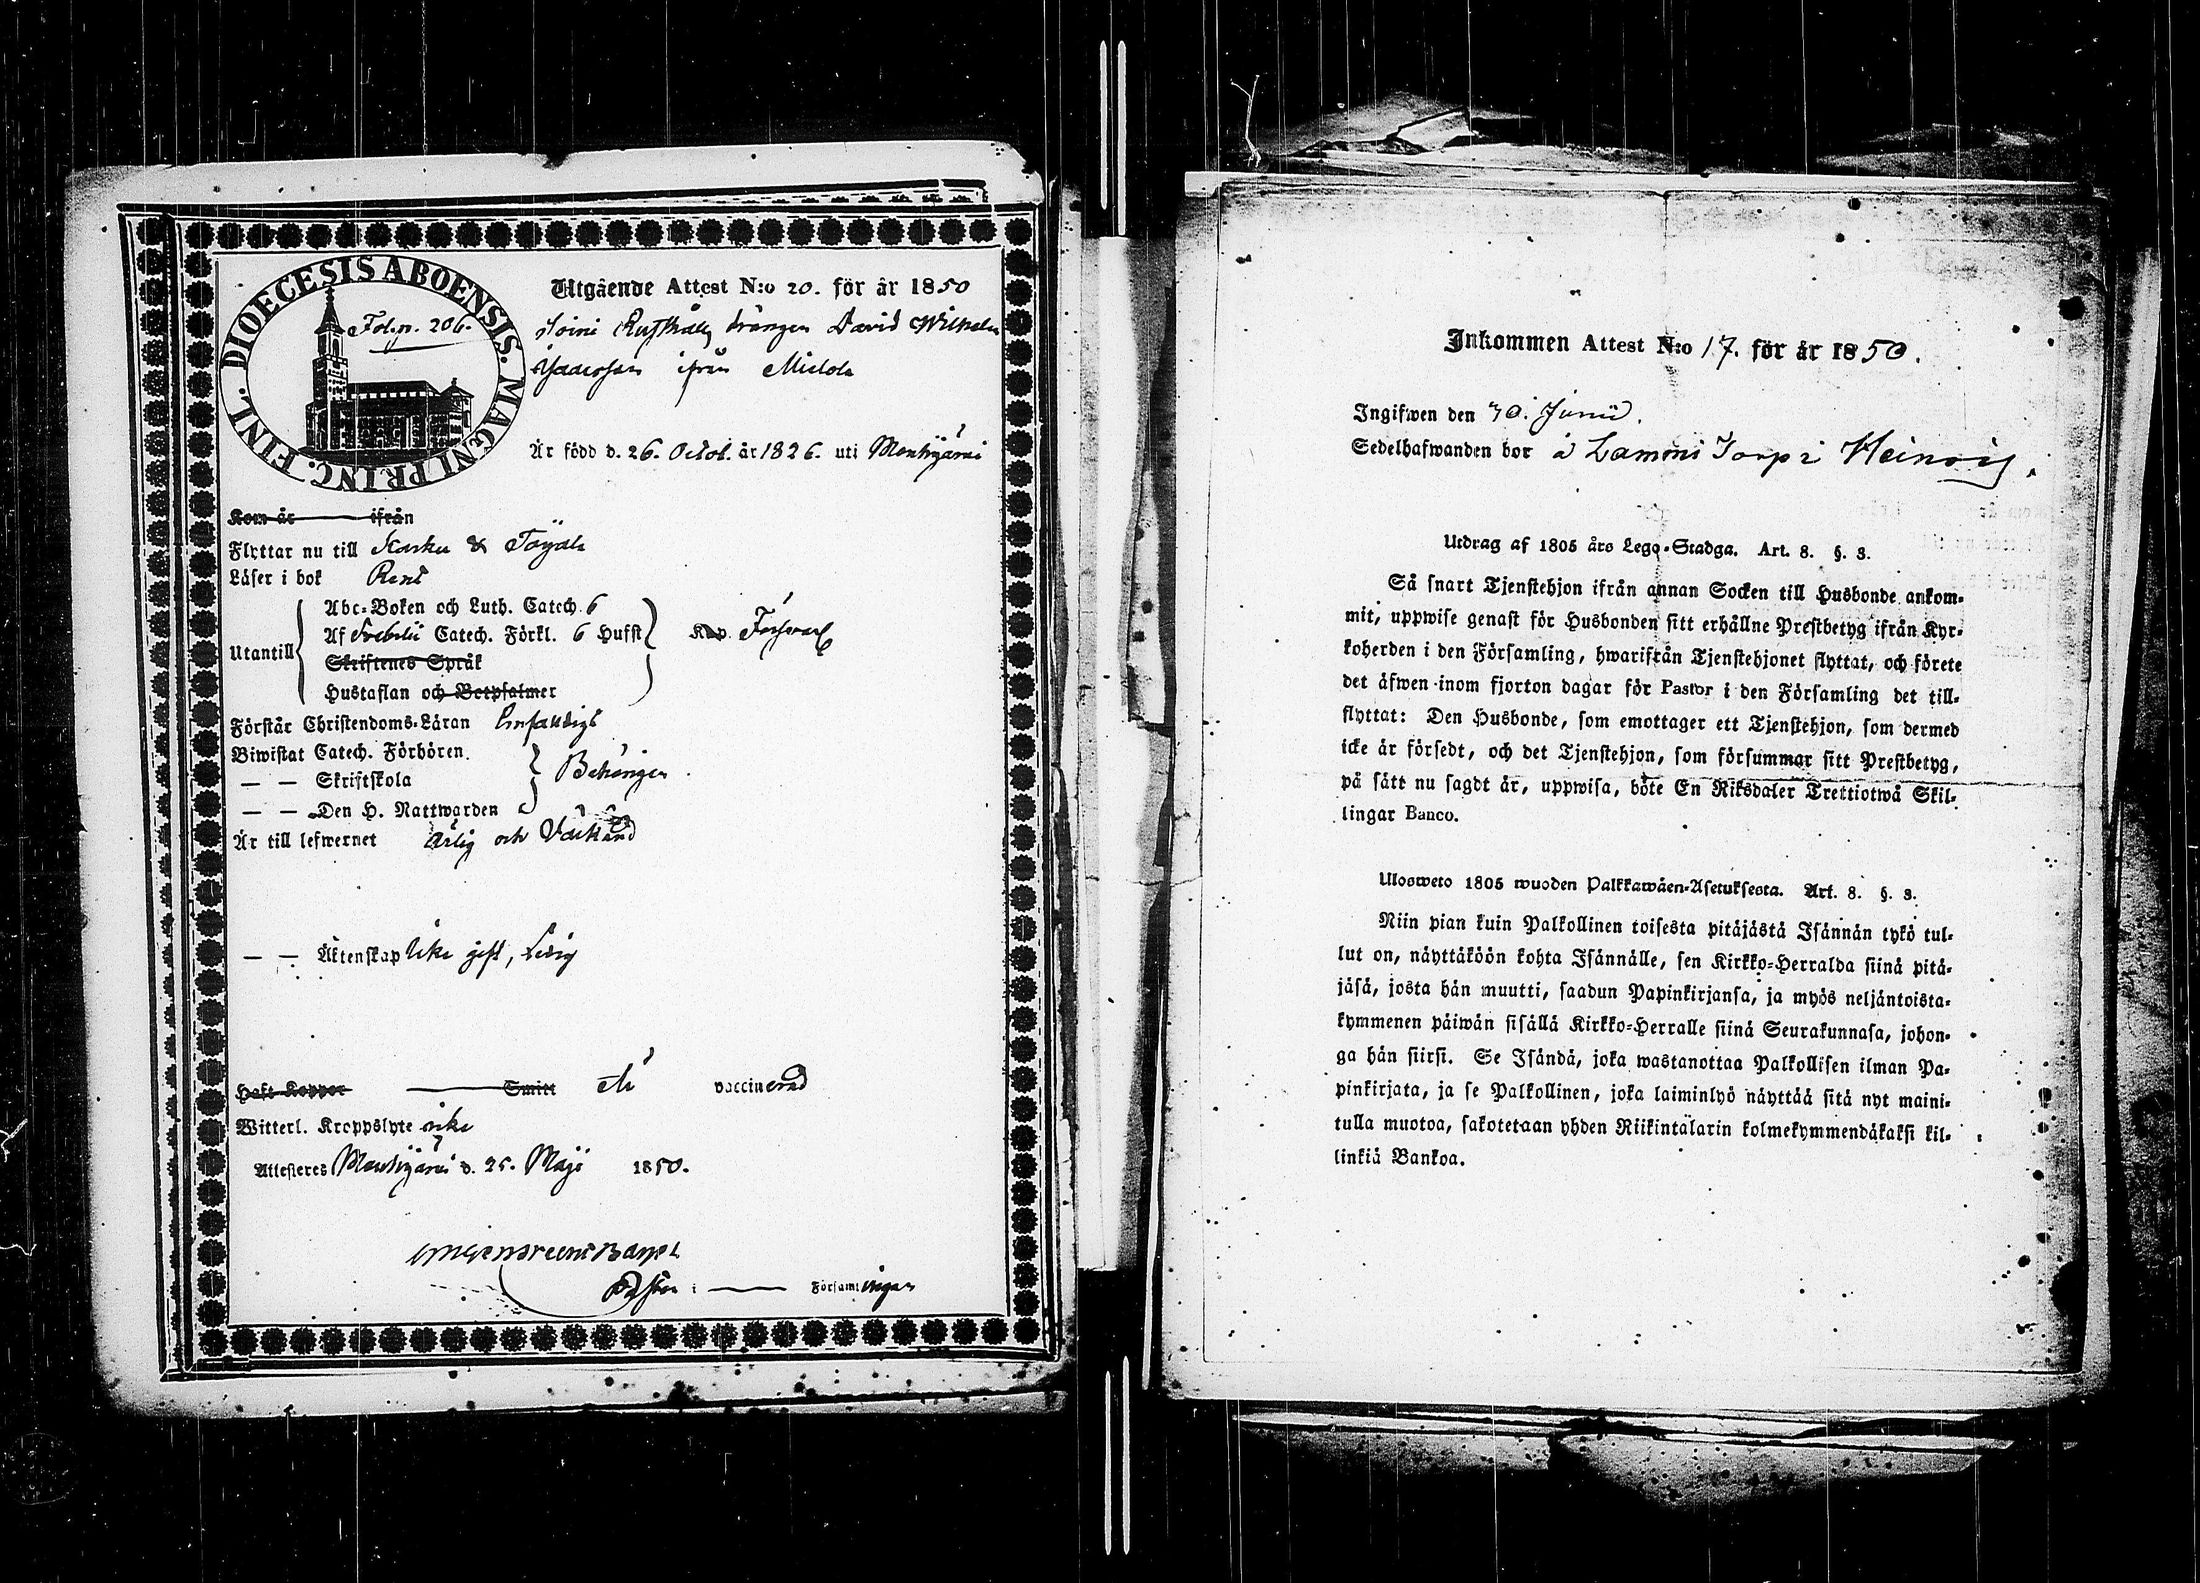 DIOECESIS ABOENSIS. MAGNI PRINC. FINL.
Fol. n. 206.
Utgående Attest N:o 20. för år 1850
drängen David Wilhelm
ifrån
Är född d. 26. Octob. år 1826. uti Mouhijärvi
Kom år ifrån
Flyttar nu till Karku &
Läser i bok Rent
Utantill
Abc-Boken och Luth. Catech. 6
Af Svebelii Catech. Förkl. 6 Hufst
Skriftenes Språk
Hustaflan och Botpsalmer
Försvarl
Förstår Christendoms-Läran Enfaldigt
Biwistat Catech. Förhören
— — Skriftskola
— — Den H. Nattwarden
Behörigen
Är till lefwernet Ärlig och Välkänd
— — Äktenskap icke gift, Ledig
Haft Koppor Smitt är vaccinerad
Witterl. Kroppslyte icke
Attesteres Mouhijärvi d. 25. Maji 1850.
Pastor i Församlingen
Inkommen Attest N:o 17. för år 1850.
Ingifwen den 30. Junii.
Sedelhafwanden bor å Lammi Torp i Heinois.
Utdrag af 1805 års Lego-Stadga. Art. 8. §. 3.
Så snart Tjenstehjon ifrån annan Socken till Husbonde ankom-
mit, uppwise genast för Husbonden sitt erhållne Prestbetyg ifrån Kyr-
koherden i den Församling, hwarifrån Tjenstehjonet flyttat, och förete
det äfwen inom fjorton dagar för Pastor i den Församling det till-
flyttat: Den Husbonde, som emottager ett Tjenstehjon, som dermed
icke är försedt, och det Tjenstehjon, som försummar sitt Prestbetyg,
på sätt nu sagdt är, uppwisa, böte En Riksdaler Trettiotwå Skil-
lingar Banco.
Ulosweto 1805 wuoden Palkkawäen-Asetuksesta. Art. 8. §. 3.
Niin pian kuin Palkollinen toisesta pitäjästä Isännän tykö tul-
lut on, näyttäköön kohta Isännälle, sen Kirkko-Herralda siinä pitä-
jäsä, josta hän muutti, saadun Papinkirjansa, ja myös neljäntoista-
kymmenen päiwän sisällä Kirkko-Herralle siinä Seurakunnasa, johon-
ga hän siirsi. Se Isändä, joka wastanottaa Palkollisen ilman Pa-
pinkirjata, ja se Palkollinen, joka laiminlyö näyttää sitä nyt maini-
tulla muotoa, sakotetaan yhden Riikintälarin kolmekymmendäkaksi kil-
linkiä Bankoa.